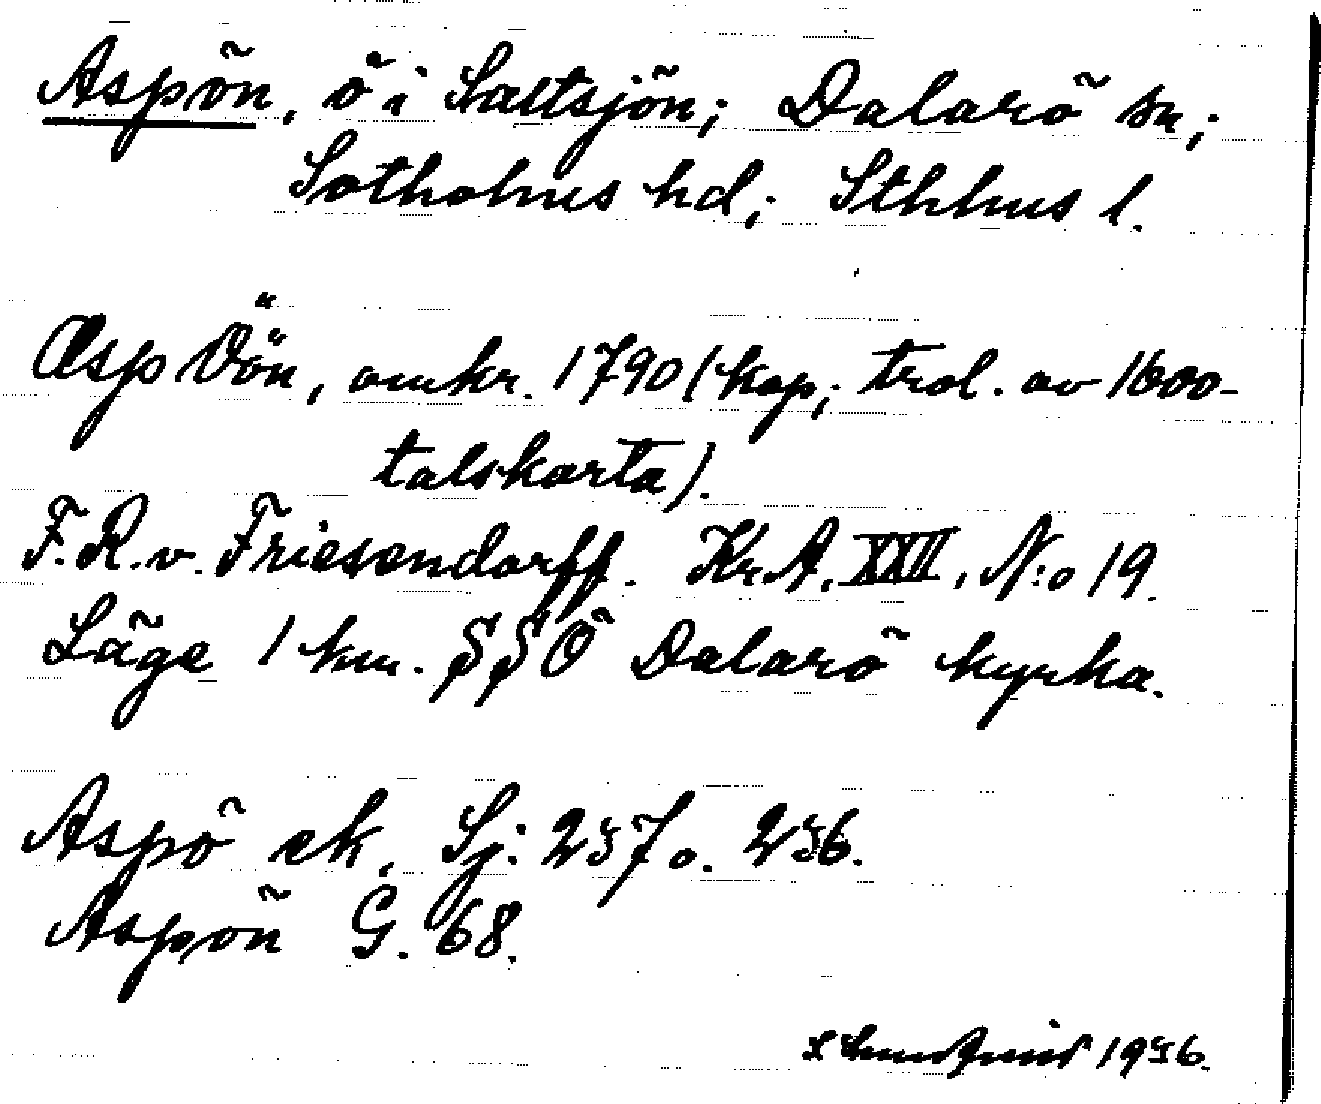 Aspön, ö i Saltsjön; Dalarö sn;
Sotholms hd; Sthlms l.
Asp Öön, omkr. 1790 (kop; trol. av 1600-
talskarta).
F. R. v. Friesendorff. Kr. A. XXII, N:o 19.
Läge 1 km. SSÖ Dalarö kyrka.
Aspö ek. Sj: 257 o. 256.
Aspön G. 68.
1956.